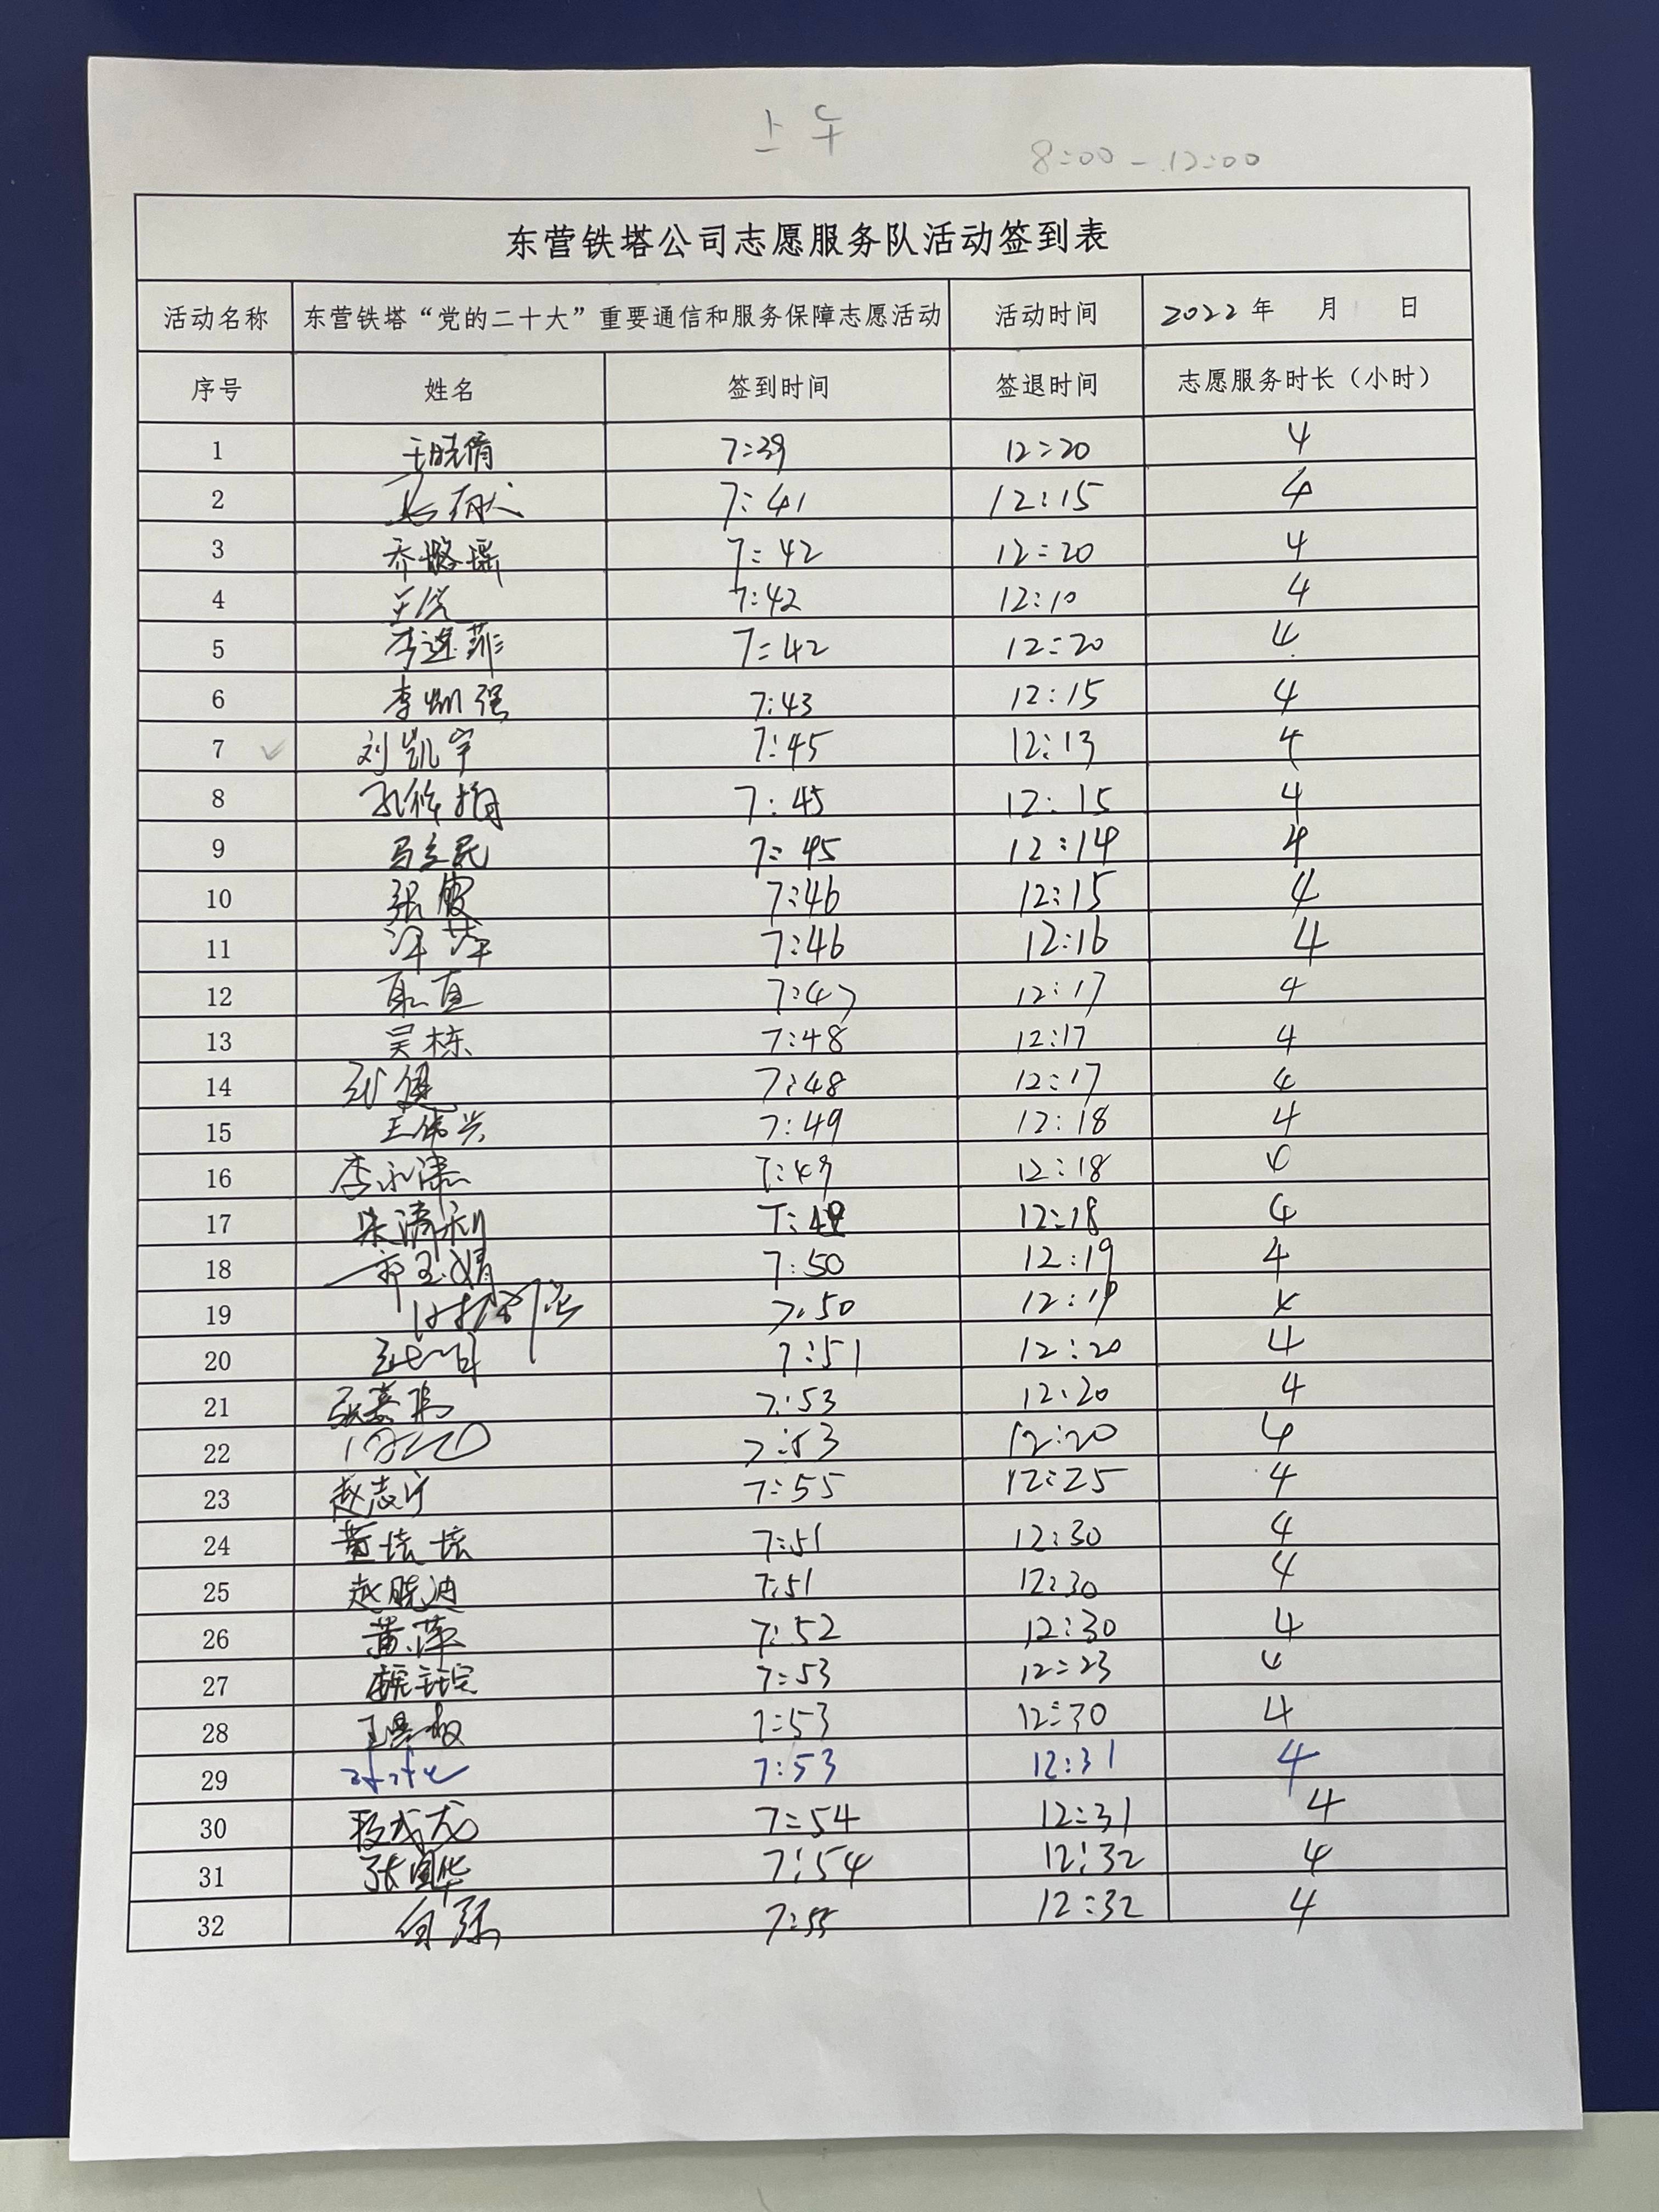 上午
8:00-12:00
东营铁塔公司志愿服务队活动签到表
活动名称 东营铁塔“党的二十大”重要通信和服务保障志愿活动 活动时间 2022年 月 日
序号 姓名 签到时间 签退时间 志愿服务时长（小时）
1 7:39 12:20 4
2 7:41 12:15 4
3 乔璐瑶 7:42 12:20 4
4 7:42 12:10 4
5 7:42 12:20 4
6 李炯强 7:43 12:15 4
7 刘凯宇 7:45 12:13 4
8 7:45 12:15 4
9 马立民 7:45 12:14 4
10 张霞 7:46 12:15 4
11 7:46 12:16 4
12 耿直 7:47 12:17 4
13 吴栋 7:48 12:17 4
14 7:48 12:17 4
15 王伟兴 7:49 12:18 4
16 李永涛 7:49 12:18 4
17 朱清利 12:18 4
18 郭玉娟 7:50 12:19 4
19 7:50 12:19 4
20 7:51 12:20 4
21 7:53 12:20 4
22 7:53 12:20 4
23 赵志宁 7:55 12:25 4
24 董培培 7:51 12:30 4
25 赵晓迪 7:51 12:30 4
26 黄萍 7:52 12:30 4
27 7:53 12:23 4
28 7:53 12:30 4
29 7:53 12:31 4
30 程成龙 7:54 12:31 4
31 张国华 7:54 12:32 4
32 7:55 12:32 4